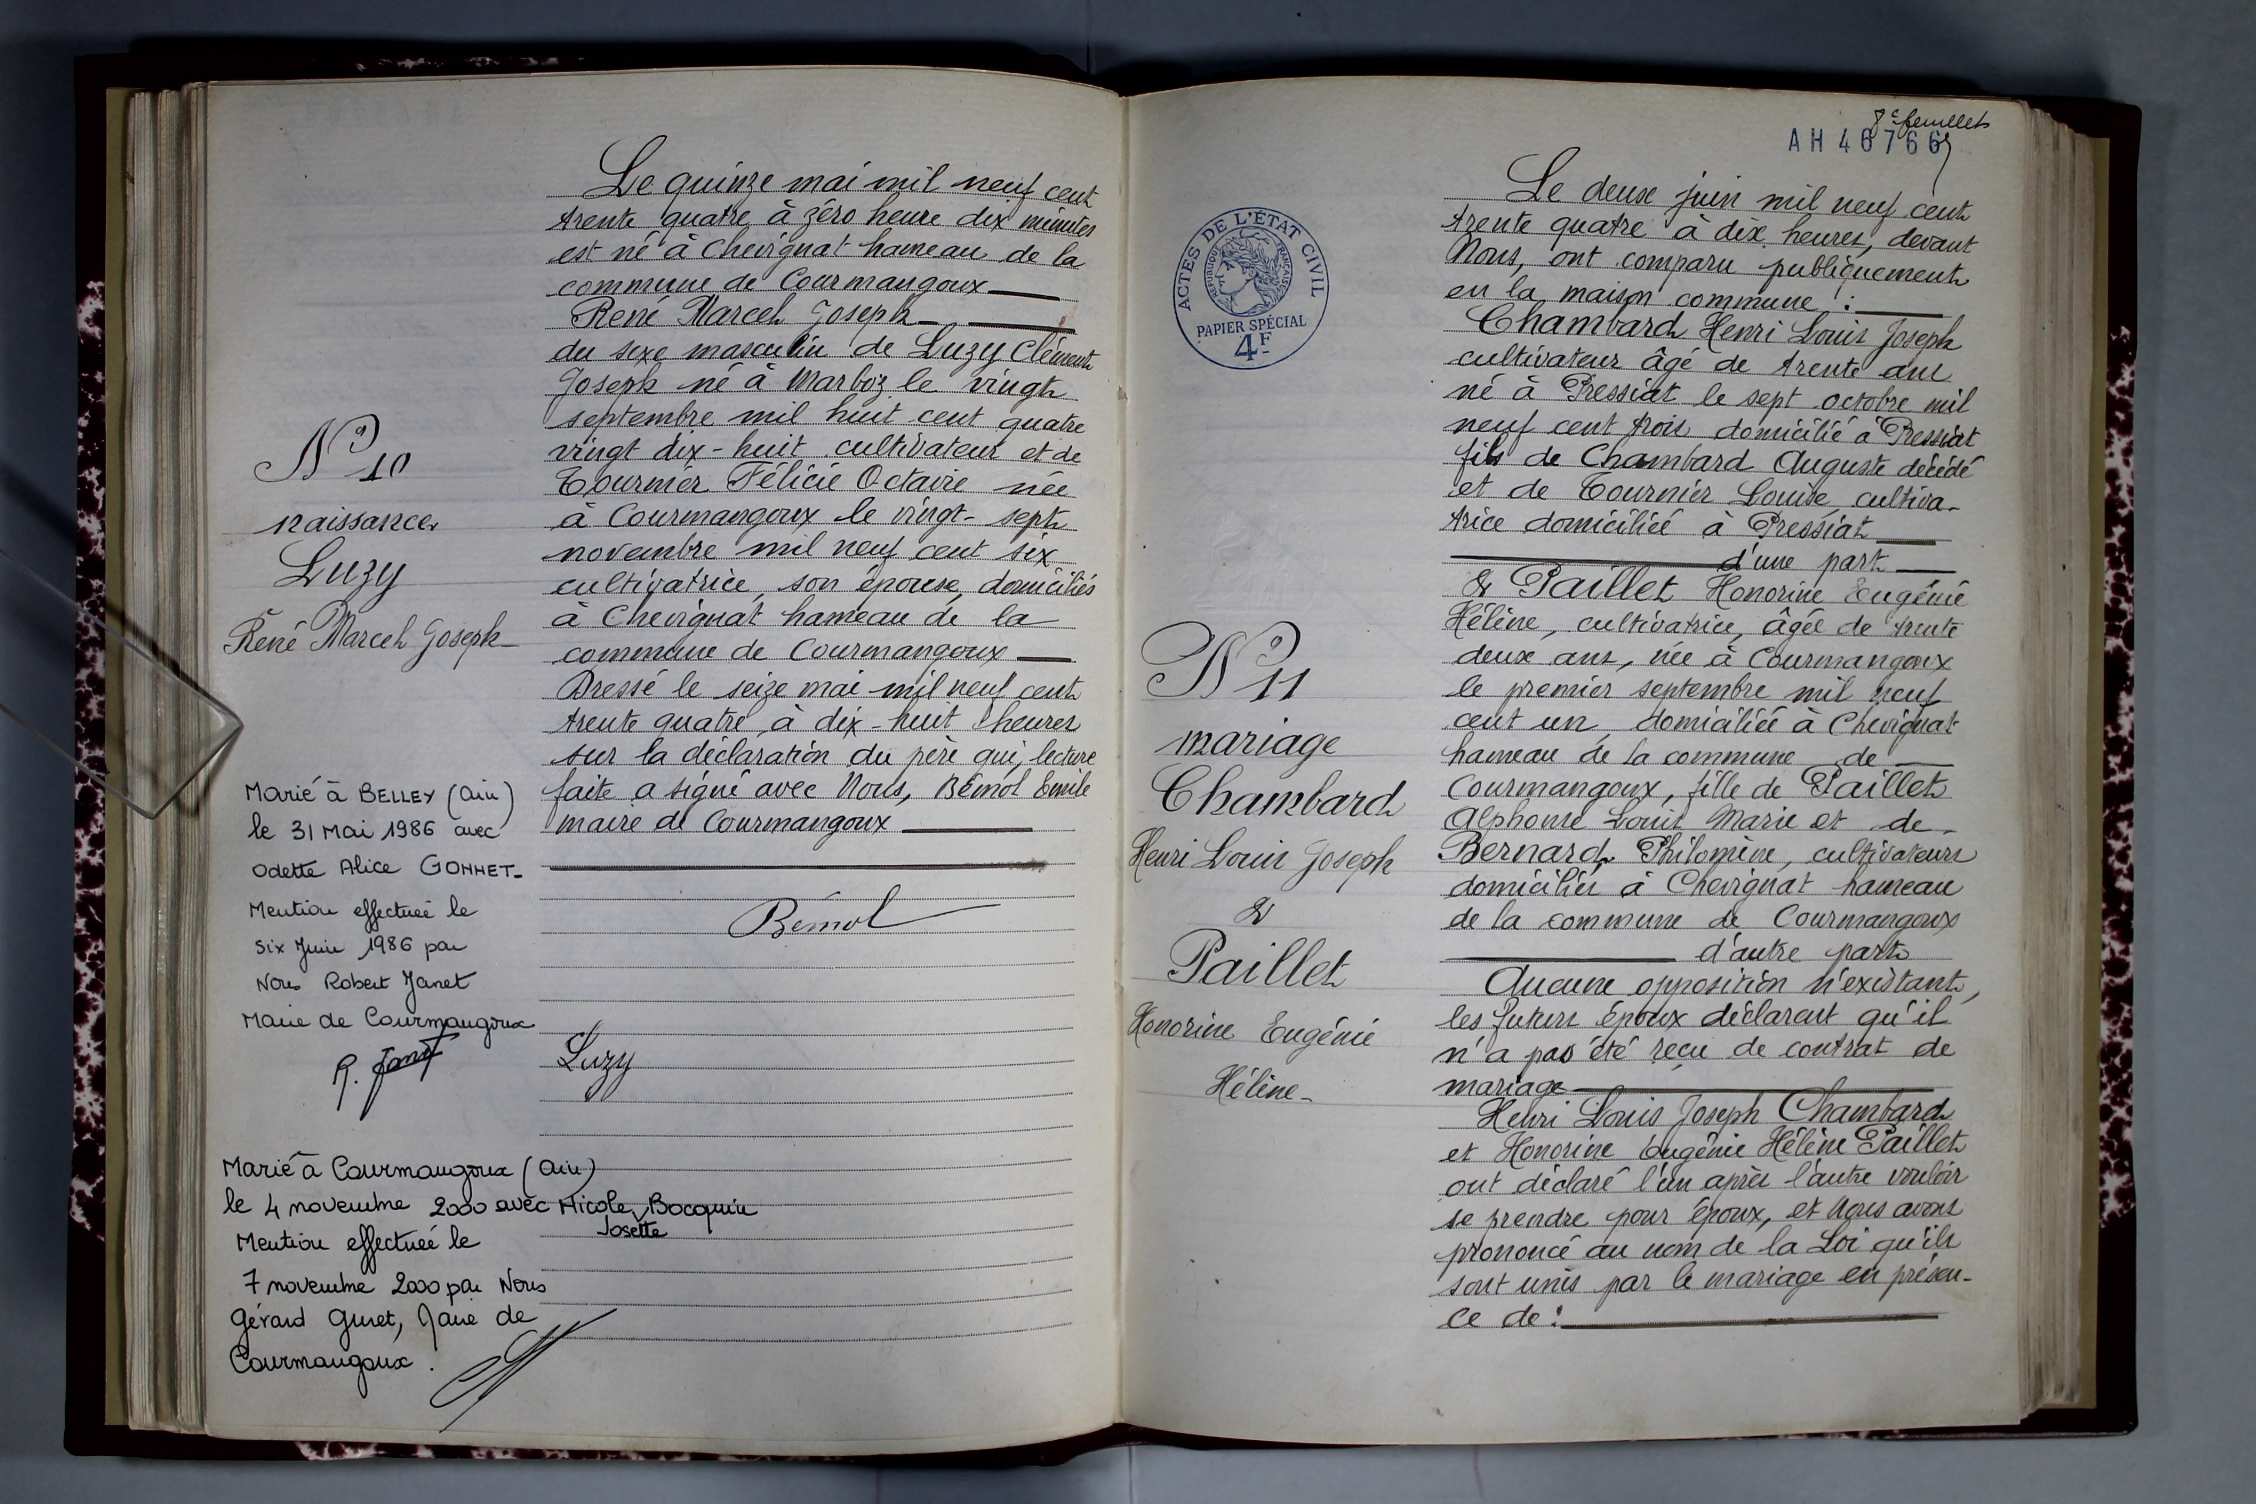 Le quinze mai mil neuf cent
trente quatre à zéro heure dix minutes
est né à Chevignat hameau de la
commune de Courmangoux
René Marcel Joseph
du sexe masculin de Luzy Clément
Joseph né à Marboz le vingt
septembre mil huit cent quatre
vingt dix-huit cultivateur et de
Tournier Félicie Octavie née
à Courmangoux le vingt-sept
novembre mil neuf cent six
cultivatrice, son épouse, domiciliés
à Chevignat hameau de la
commune de Courmangoux
Dressé le seize mai mil neuf cent
trente quatre, à dix-huit heures
sur la déclaration du père qui, lecture
faite a signé avec Nous, Bémol Emile
maire de Courmangoux
Bémol
Luzy
N° 10
naissance
Luzy
René Marcel Joseph
Marié à BELLEY (Ain)
le 31 Mai 1986 avec
Odette Alice GONNET.
Mention effectuée le
six Juin 1986 par
Nous Robert Janet
Maire de Courmangoux
R. Janet
Marié à Courmangoux (Ain)
le 4 novembre 2000 avec Nicole Bocquin
Josette
Mention effectuée le
7 novembre 2000 par Nous
Gérard Guret, Maire de
Courmangoux.
feuillet
AH 46766
ACTES DE L'ÉTAT CIVIL
RÉPUBLIQUE FRANÇAISE
PAPIER SPÉCIAL
4F
N° 11
mariage
Chambard
Henri Louis Joseph
&
Paillet
Honorine Eugénie
Hélène
Le deux juin mil neuf cent
trente quatre à dix heures, devant
Nous, ont comparu publiquement
en la maison commune :
Chambard Henri Louis Joseph
cultivateur âgé de trente ans
né à Pressiat le sept octobre mil
neuf cent trois domicilié à Pressiat
fils de Chambard Auguste décédé
et de Tournier Louise, cultiva-
trice domiciliée à Pressiat
d'une part
& Paillet Honorine Eugénie
Hélène, cultivatrice, âgée de trente
deux ans, née à Courmangoux
le premier septembre mil neuf
cent un, domiciliée à Chevignat
hameau de la commune de
Courmangoux, fille de Paillet
Alphonse Louis Marie et de
Bernard Philomène, cultivateurs
domiciliés à Chevignat hameau
de la commune de Courmangoux
d'autre part
Aucune opposition n'existant,
les futurs époux déclarent qu'il
n'a pas été reçu de contrat de
mariage
Henri Louis Joseph Chambard
et Honorine Eugénie Hélène Paillet
ont déclaré l'un après l'autre vouloir
se prendre pour époux, et Nous avons
prononcé au nom de la Loi qu'ils
sont unis par le mariage en présen-
ce de :